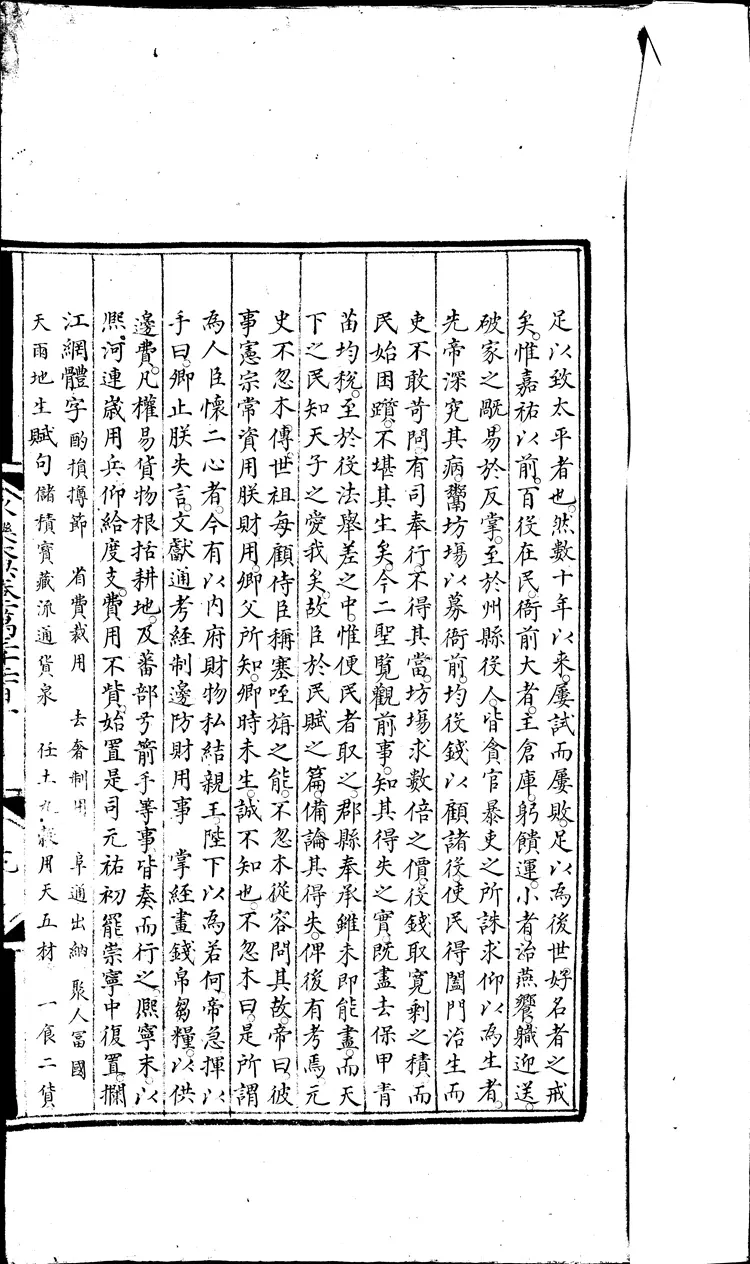 足以致太平者也。然數十年以來。屢試而屢敗。足以為後世好名者之戒
矣。惟嘉祐以前。百役在民。衙前大者。主倉庫。躬饋運。小者治燕饗。職迎送。
破家之厩。易於反掌。至於州縣役人。皆貪官暴吏之所誅求仰以為生者。
先帝深究其病。鬻坊場以募衙前。均役錢以顧諸役。使民得闔門治生而
吏不敢苛問。有司奉行。不得其當。坊場求數倍之價。役錢取寬剩之積。而
民始困躓。不堪其生矣。今二聖覽觀前事。知其得失之實。既盡去保甲青
苗均稅。至於役法舉差之中。惟便民者取之。郡縣奉承雖未即能盡。而天
下之民知天子之愛我矣。故臣於民賦之篇。備論其得失。俾後有考焉。元
史不忽木傳。世祖每顧侍臣稱塞咥旃之能。不忽木從容問其故。帝曰。彼
事憲宗常資用朕財用。卿父所知。卿時未生。誠不知也。不忽木曰。是所謂
為人臣懷二心者。今有以內府財物私結親王。陛下以為若何帝急揮以
手曰。卿止朕失言。文獻通考經制邊防財用事 掌經畫錢帛芻糧。以供
邊費。凡權易貨物根括耕地。及蕃部弓箭手等事皆奏而行之。熙寧末。以
熙。河連歲用兵仰給度支。費用不貲。始置是司元祐初罷崇寧中復置。攔
江網體字 酌損撙節 省費裁用 去奢制用 阜通出納 聚人富國
天雨地生賦句儲積寶藏派通貨泉 任土 用天五材 一食二貨